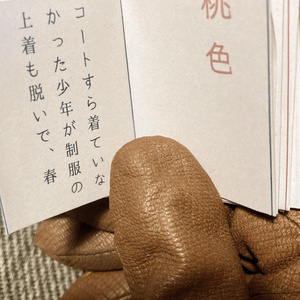 桃色
コートすら着ていな
かった少年が制服の
上着も脱いで、春